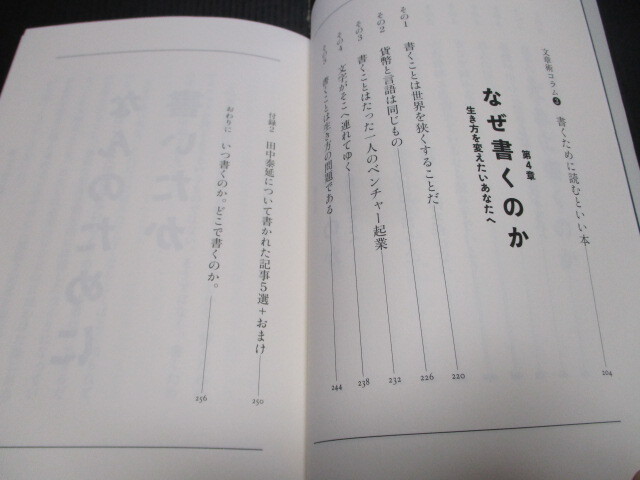 文章術コラム❸ 書くために読むといい本 204
第4章
なぜ書くのか
生き方を変えたいあなたへ
その1 書くことは世界を狭くすることだ 220
その2 貨幣と言語は同じもの 226
その3 書くことはたった一人のベンチャー起業 232
その4 文字がそこへ連れてゆく 238
その5 書くことは生き方の問題である 244
付録2 田中泰延について書かれた記事5選+おまけ 250
おわりに いつ書くのか。どこで書くのか。 256